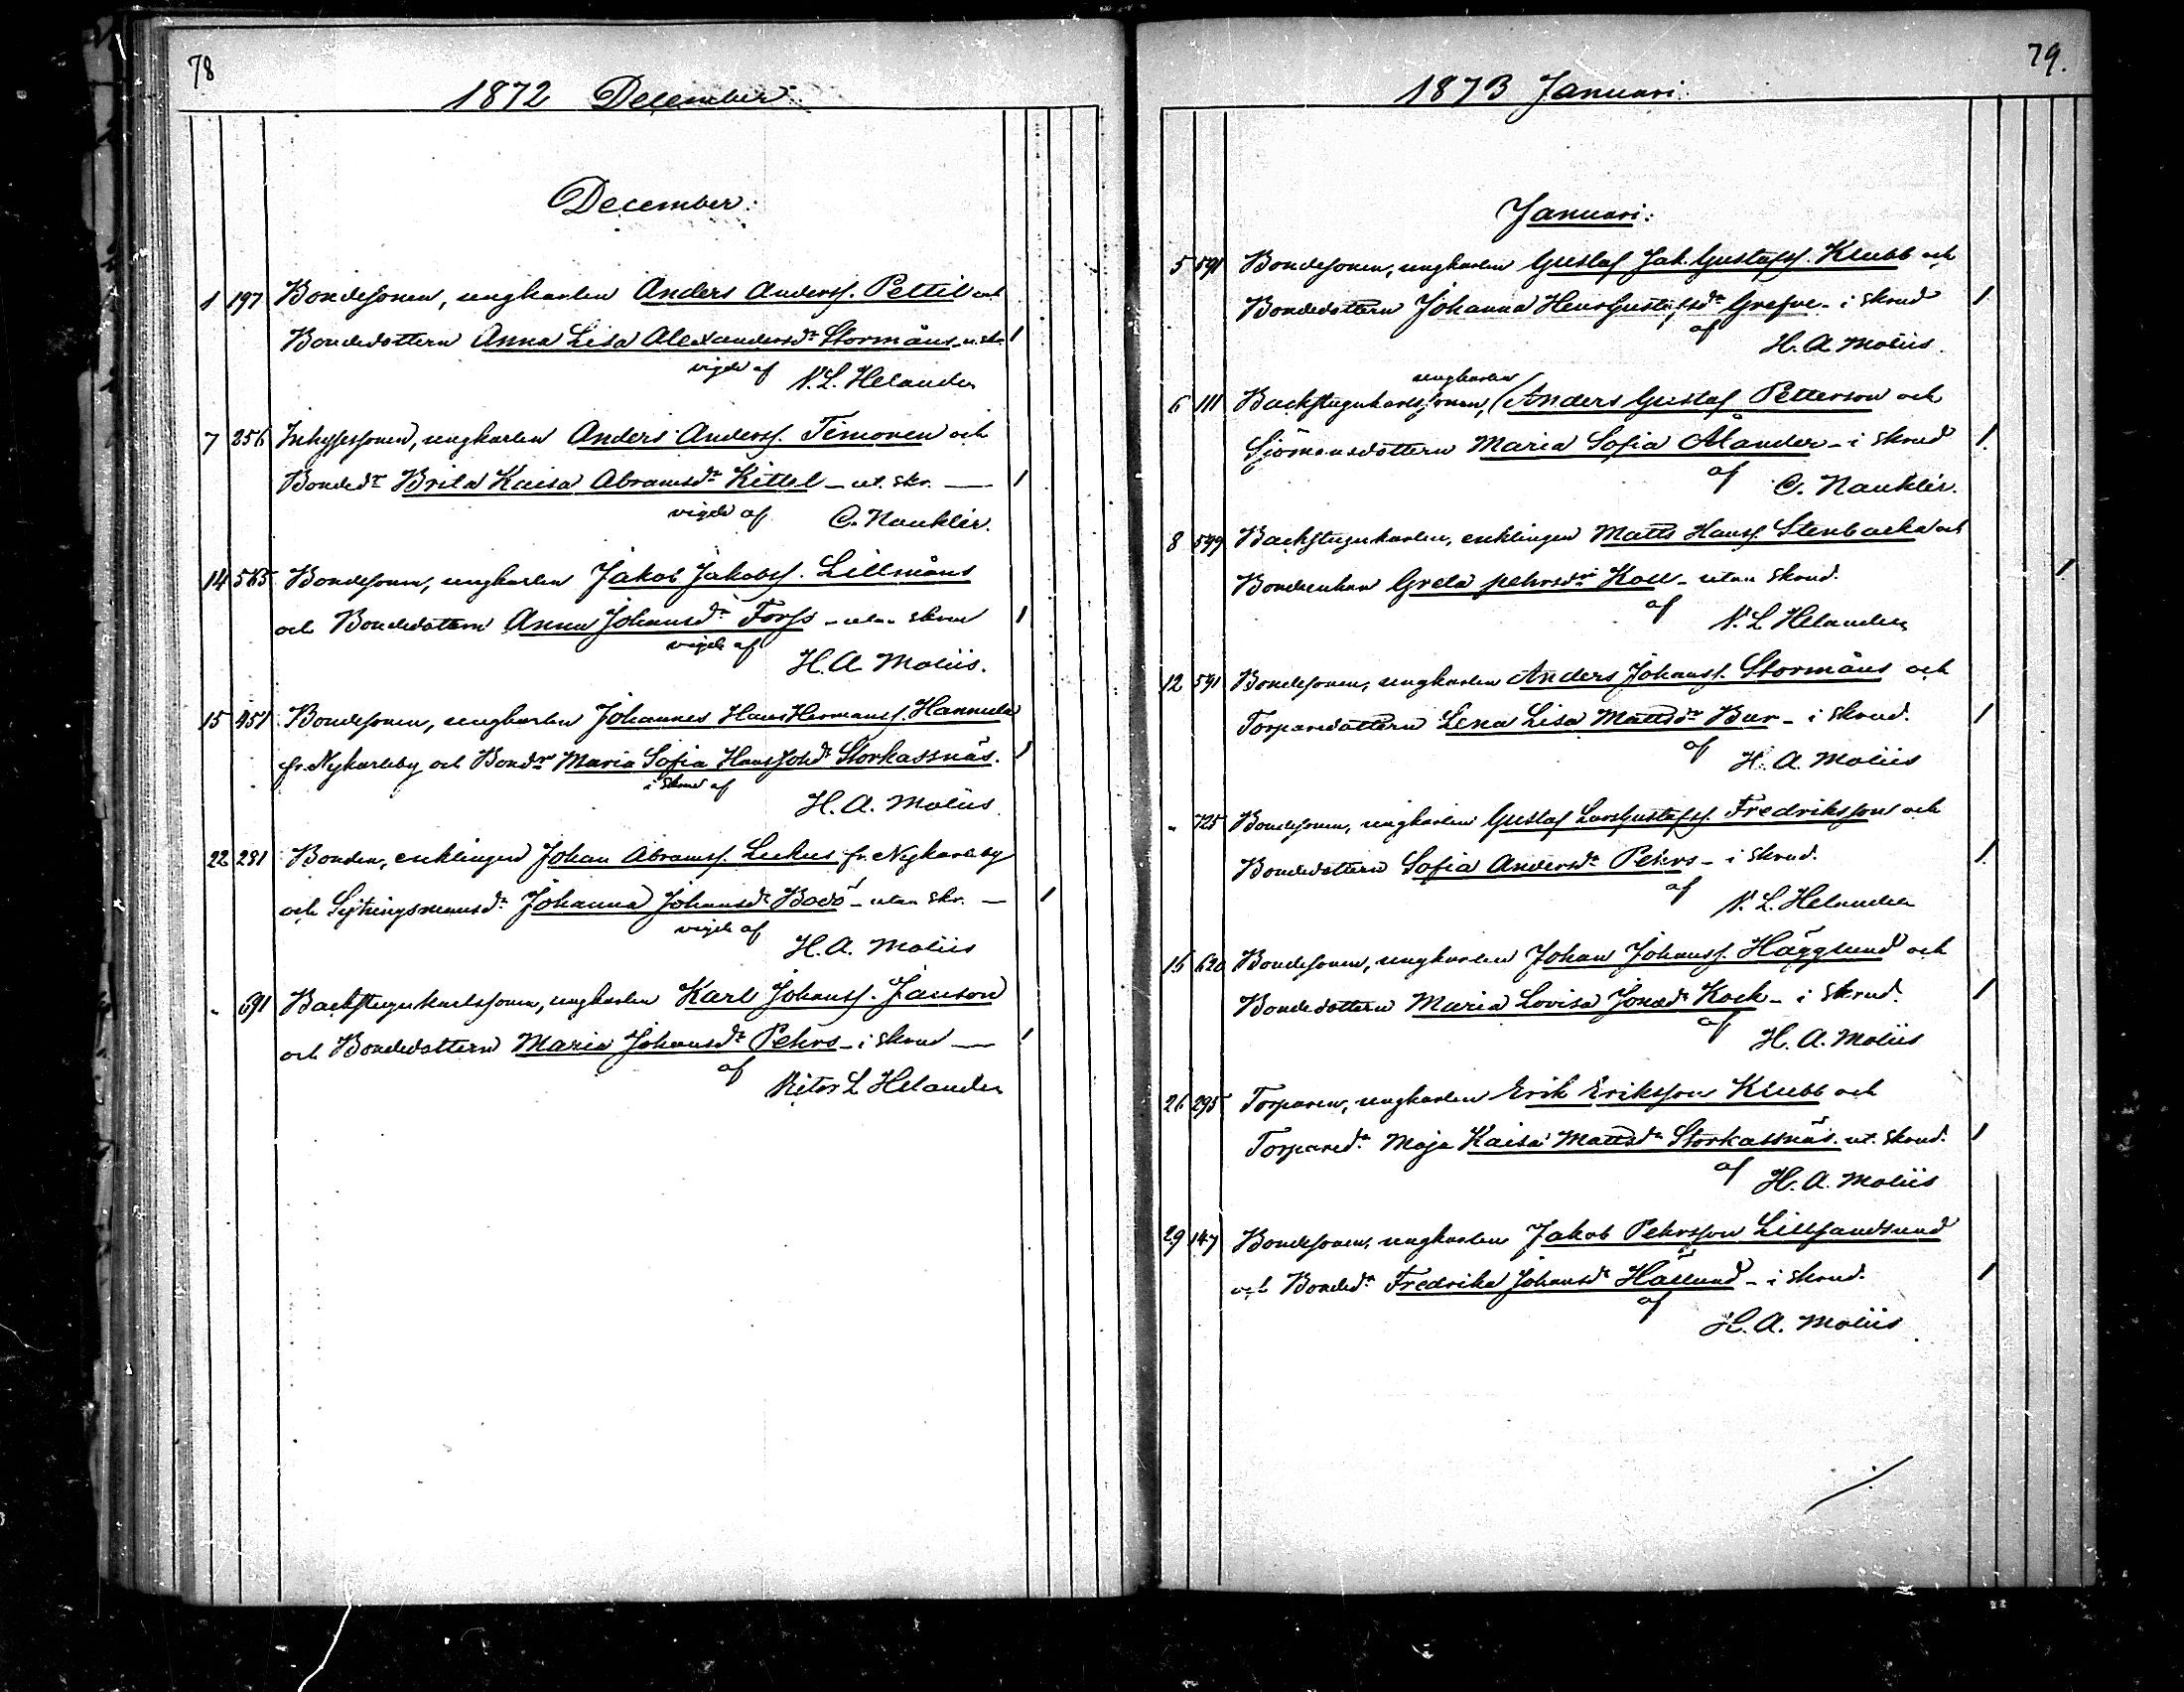 78
1872 December.
December.
1 197 Bondesonen, ungkarlen Anders Anderss. Pettil och
Bondedottern Anna Lisa Alexandersdr Stormåns - u. skr. 1
vigde af N. L. Helander
7 256 Inhysessonen, ungkarlen Anders Anderss. Timonen och
Bondedr Brita Kaisa Abramsdr Kittel - ut. skr. — 1
vigde af C. Nauklér.
14 565 Bondesonen, ungkarlen Jakob Jakobss. Lillmåns
och Bondedottern Anna Johansdr Forss - utan skrud 1
vigde af
H. A. Moliis.
15 451 Bondesonen, ungkarlen Johannes Hans Hermanss. Hannula
fr. Nykarleby och Bondr Maria Sofia Hans Johdr Storkassnäs. 1
i skrud af
H. A. Moliis.
22 281 Bonden, enklingen Johan Abramss. Lukus fr. Nykarleby
och Sytningsmansdr Johanna Johansdr Bodö - utan skr. — 1
vigde af
H. A. Moliis
" 691 Backstugukarlssonen, ungkarlen Karl Johanss. Janson
och Bondedottern Maria Johansdr Pehrs - i skrud — 1
af
Viktor L Helander
79.
1873 Januari.
Januari:
5 591 Bondesonen, ungkarlen Gustaf Jak. Gustafss. Klubb och
Bondedottern Johanna Hens Gustafsdr Grefve - i skrud 1
af
H. A. Moliis.
ungkarlen
6 111 Backstugukarlssonen, Anders Gustaf Petterson och
Sjömansdottern Maria Sofia Ålander - i skrud 1.
af
C. Nauklér.
8 599 Backstugukarlen, enklingen Matts Hanss. Stenbacka och
Bondeenkan Greta Pehrsdr Koll - utan skrud. 1
af
N. L Helander
12 591 Bondesonen, ungkarlen Anders Johanss. Stormåns och
Torparedottern Lena Lisa Mattsdr Bur - i skrud. 1
af
H. A. Moliis
" 725 Bondesonen, ungkarlen Gustaf Lars Gustafss. Fredriksson och
Bondedottern Sofia Andersdr Pehrs - i skrud. 1.
af
N. L. Helander
15 620 Bondesonen, ungkarlen Johan Johanss. Hägglund och
Bondedottern Maria Lovisa Jonasdr Kock - i skrud. 1
af
H. A. Moliis
26 295 Torparen, ungkarlen Erik Eriksson Klubb och
Torparedr Maja Kaisa Mattsdr Storkassnäs. ut. skrud. 1
af
H. A. Moliis
29 147 Bondesonen, ungkarlen Jakob Pehrsson Lillsandsund
och Bondedr Fredrika Johansdr Håslund - i skrud. 1
af
H. A. Moliis